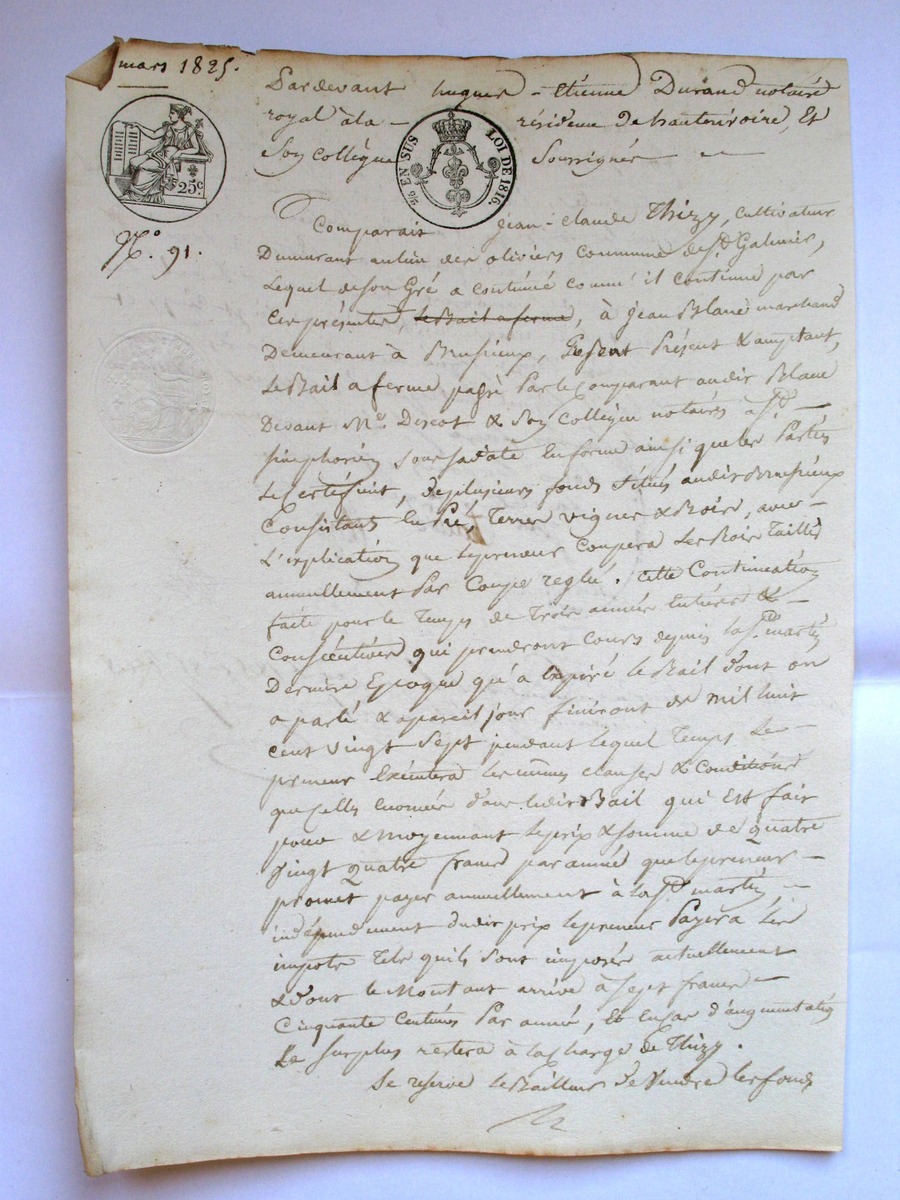 mars 1825.
Pardevant hugues - Etienne Durand notaire
royal à la - résidence de hauterivoire, Et
Son Collègue Soussignés
5/10 EN SUS LOI DE 1816.
25c.
N.º 91.
Comparait jean-claude Thizy, cultivateur
Demeurant au lieu des oliviers commune de St. Galmier,
Lequel de son Gré a continué comme il continue par
Ces présentes, le Bail a ferme, à jean Blanc marchand
Demeurant à Brusieux, Présent & acceptant,
Le Bail a ferme passé Par le Comparant audit Blanc
Devant Me. Descot & Son Collègue notaires à St.
simphorien sous sa date En forme ainsi que les Parties
Le Certifient, de plusieurs fonds situés audit Brusieux
Consistants En Pré, Terres vignes & Bois, avec
L'explication que le preneur Coupera Les Bois Taillis
annuellement Par Coupe reglée. Cette Continuation
faite pour le Temps de Trois années Entières &
Consécutives qui prendront cours depuis la St. martin
Derniere Epoque qu'a Expiré le Bail d'ont on
a parlé & a pareil jour finiront de mil huit
cent vingt Sept pendant lequel Temps Le
preneur Exécutera les mêmes clauses & Conditions
que Celles Enoncées d'ans ledit Bail qui Est fait
pour & Moyennant le prix & somme de quatre
vingt quatre francs par année que le preneur
promet payer annuellement à la St. martin
indépendament dudit prix le preneur Payera les
impots Tels quils sont imposés actuellement
& d'ont le Montant arrive à Sept francs
Cinquante Centimes Par année, Et En cas d'augmentation
Le surplus restera à la Charge de Thizy.
Se reserve le Bailleur de Vendre les fonds